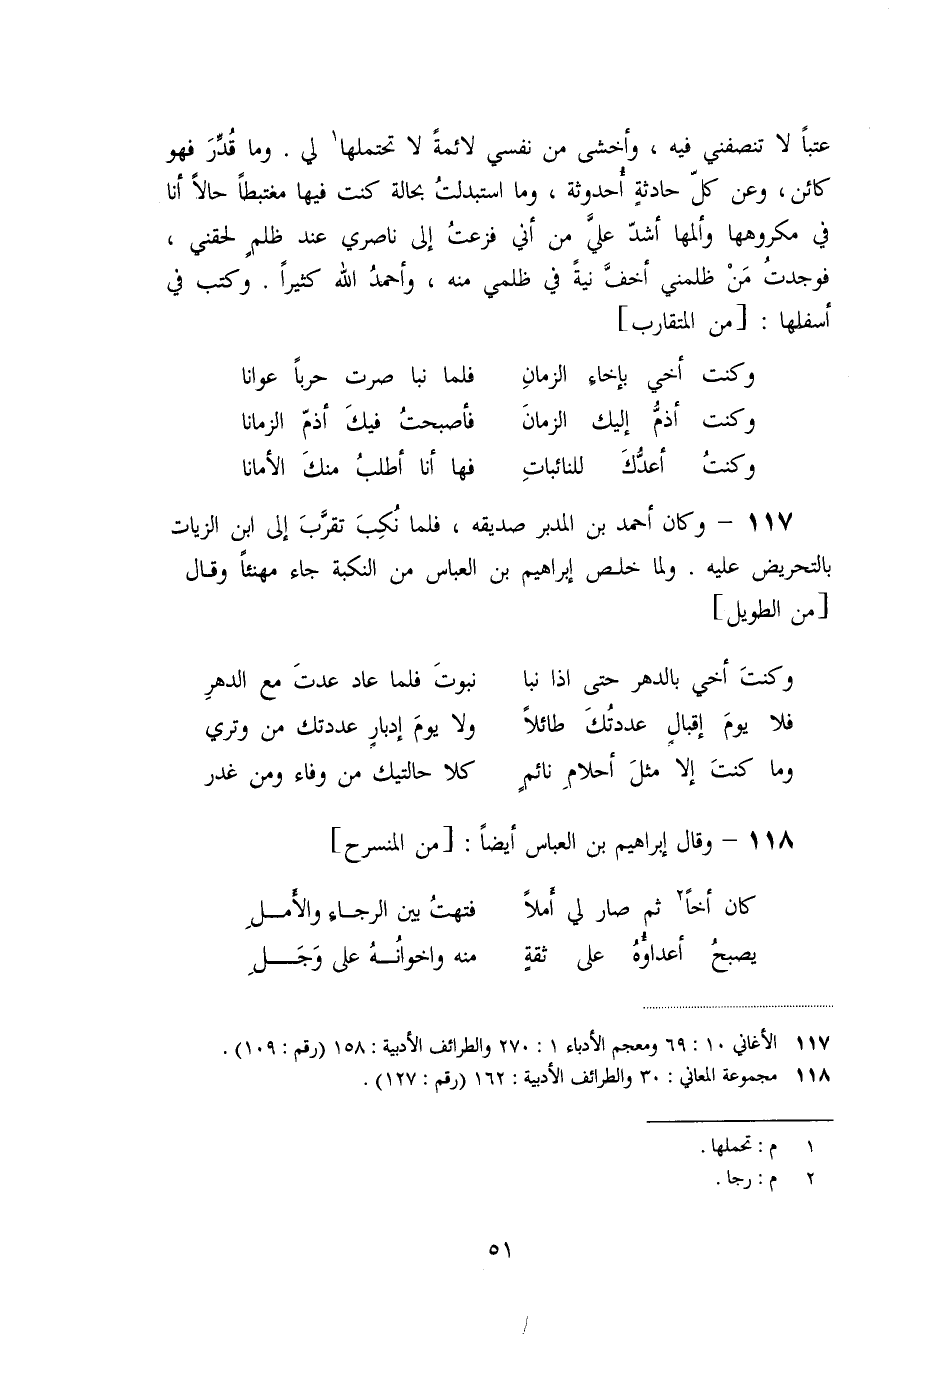 عتباً لا تنصفني فيه ، وأخشى من نفسي لائمةً لا تحتملها١ لي . وما قُدِّرَ فهو
كائن ، وعن كلّ حادثةٍ أُحدوثة ، وما استبدلتُ بحالة كنت فيها مغتبطاً حالاً أنا
في مكروهها وألمها أشدّ عليَّ من أني فزعتُ إلى ناصري عند ظلمٍ لحقني ،
فوجدتُ مَنْ ظلمني أخفَّ نيةً في ظلمي منه ، وأحمدُ الله كثيراً . وكتب في
أسفلها : [من المتقارب]
وكنت أخي بإخاءِ الزمانِ فلما نبا صرت حرباً عوانا
وكنت أذمُّ إليك الزمانَ فأصبحتُ فيكَ أذمّ الزمانا
وكنتُ أعدُّكَ للنائباتِ فها أنا أطلبُ منكَ الأمانا
١١٧ – وكان أحمد بن المدبر صديقه ، فلما نُكِبَ تقرَّبَ إلى ابن الزيات
بالتحريض عليه . ولما خلص إبراهيم بن العباس من النكبة جاء مهنئاً وقال
[من الطويل]
وكنتَ أخي بالدهر حتى اذا نبا نبوتَ فلما عاد عدتَ مع الدهرِ
فلا يومَ إقبالٍ عددتُكَ طائلاً ولا يومَ إدبارٍ عددتك من وتري
وما كنتَ إلا مثلَ أحلامِ نائمٍ كلا حالتيك من وفاء ومن غدر
١١٨ – وقال إبراهيم بن العباس أيضاً : [من المنسرح]
كان أخاً٢ ثم صار لي أملاً فتهتُ بين الرجاء والأملِ
يصبحُ أعداؤُهُ على ثقةٍ منه واخوانُهُ على وَجَلِ
١١٧ الأغاني ١٠ : ٦٩ ومعجم الأدباء ١ : ٢٧٠ والطرائف الأدبية : ١٥٨ (رقم : ١٠٩) .
١١٨ مجموعة المعاني : ٣٠ والطرائف الأدبية : ١٦٢ (رقم : ١٢٧) .
١ م : تحملها .
٢ م : رجا .
٥١